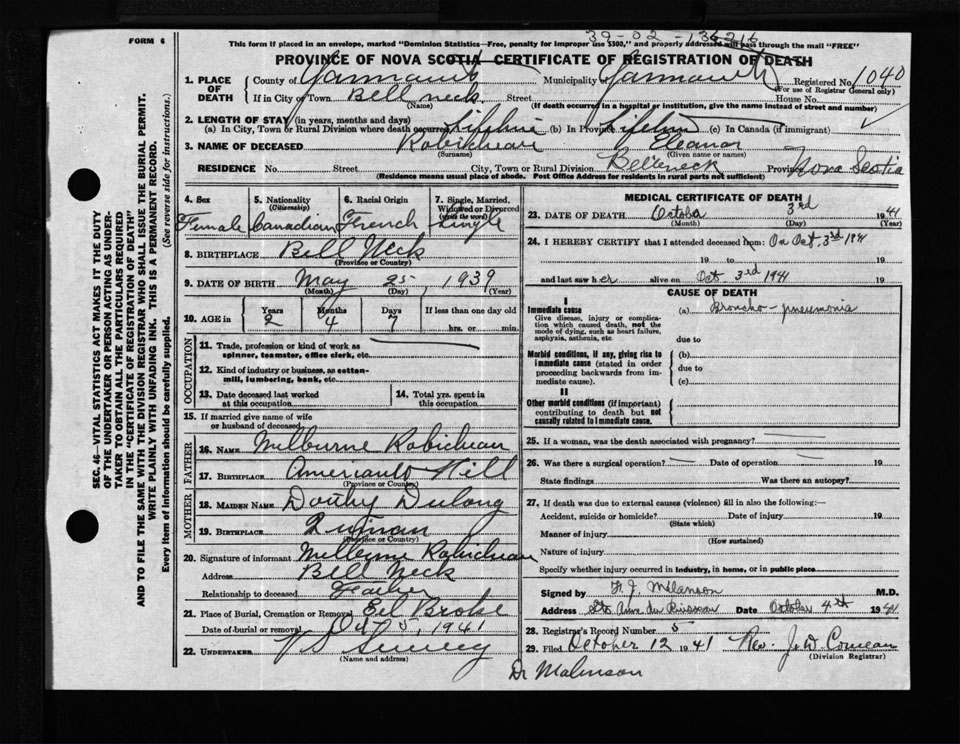 39-02-136216
FORM 6
This form if placed in an envelope, marked "Dominion Statistics—Free, penalty for improper use $300," and properly addressed will pass through the mail "FREE"
PROVINCE OF NOVA SCOTIA CERTIFICATE OF REGISTRATION OF DEATH
1. PLACE OF DEATH County of Yarmouth Municipality of Yarmouth Registered No. 1040
(For use of Registrar General only)
If in City or Town Bell neck Street House No.
(Name) (If death occurred in a hospital or institution, give the name instead of street and number)
2. LENGTH OF STAY (in years, months and days)
(a) In City, Town or Rural Division where death occurred Lifetime (b) In Province Lifetime (c) In Canada (if immigrant)
3. NAME OF DECEASED Robicheau Eleanor
(Surname) (Given name or names)
RESIDENCE No. Street City, Town or Rural Division Belleneck Province Nova Scotia
(Residence means usual place of abode. Post Office Address for residents in rural parts not sufficient)
SEC. 46—VITAL STATISTICS ACT MAKES IT THE DUTY
OF THE UNDERTAKER OR PERSON ACTING AS UNDER-
TAKER TO OBTAIN ALL THE PARTICULARS REQUIRED
IN THE "CERTIFICATE OF REGISTRATION OF DEATH"
AND TO FILE THE SAME WITH THE DIVISION REGISTRAR WHO SHALL ISSUE THE BURIAL PERMIT.
WRITE PLAINLY WITH UNFADING INK. THIS IS A PERMANENT RECORD.
Every item of information should be carefully supplied. (See reverse side for instructions.)
4. Sex 5. Nationality (Citizenship) 6. Racial Origin 7. Single, Married, Widowed or Divorced (write the word)
Female Canadian French Single
8. BIRTHPLACE Bell Neck
(Province or Country)
9. DATE OF BIRTH May 25, 1939
(Month) (Day) (Year)
10. AGE in Years Months Days If less than one day old
2 4 7 hrs. or min.
OCCUPATION
11. Trade, profession or kind of work as spinner, teamster, office clerk, etc.
12. Kind of industry or business, as cotton-mill, lumbering, bank, etc.
13. Date deceased last worked at this occupation
14. Total yrs. spent in this occupation
15. If married give name of wife or husband of deceased
FATHER
16. NAME Milburne Robicheau
17. BIRTHPLACE Amerault Hill
(Province or Country)
MOTHER
18. MAIDEN NAME Dorthy Dulong
19. BIRTHPLACE Quinan
(Province or Country)
20. Signature of informant Milburne Robicheau
Address Bell Neck
Relationship to deceased Father
21. Place of Burial, Cremation or Removal Eel Broke
Date of burial or removal Oct 5, 1941
22. UNDERTAKER V S Sweeny
(Name and address)
MEDICAL CERTIFICATE OF DEATH
23. DATE OF DEATH October 3rd 1941
(Month) (Day) (Year)
24. I HEREBY CERTIFY that I attended deceased from: On Oct. 3rd 1941
19 to 19
and last saw her alive on Oct 3rd 1941
CAUSE OF DEATH
I
Immediate cause (a) Broncho-pneumonia
Give disease, injury or complication which caused death, not the mode of dying, such as heart failure, asphyxia, asthenia, etc.
due to
Morbid conditions, if any, giving rise to immediate cause (stated in order proceeding backwards from immediate cause). (b)
due to
(c)
II
Other morbid conditions (if important) contributing to death but not causally related to immediate cause.
25. If a woman, was the death associated with pregnancy?
26. Was there a surgical operation? Date of operation 19
State findings Was there an autopsy?
27. If death was due to external causes (violence) fill in also the following:—
Accident, suicide or homicide? Date of injury 19
(State which)
Manner of injury
(How sustained)
Nature of injury
Specify whether injury occurred in industry, in home, or in public place
Signed by F. J. Melanson M.D.
Address Ste Anne du Ruisseau Date October 4th 1941
28. Registrar's Record Number 5
29. Filed October 12 1941 Rev J. W. Comeau
(Division Registrar)
Dr Malinson